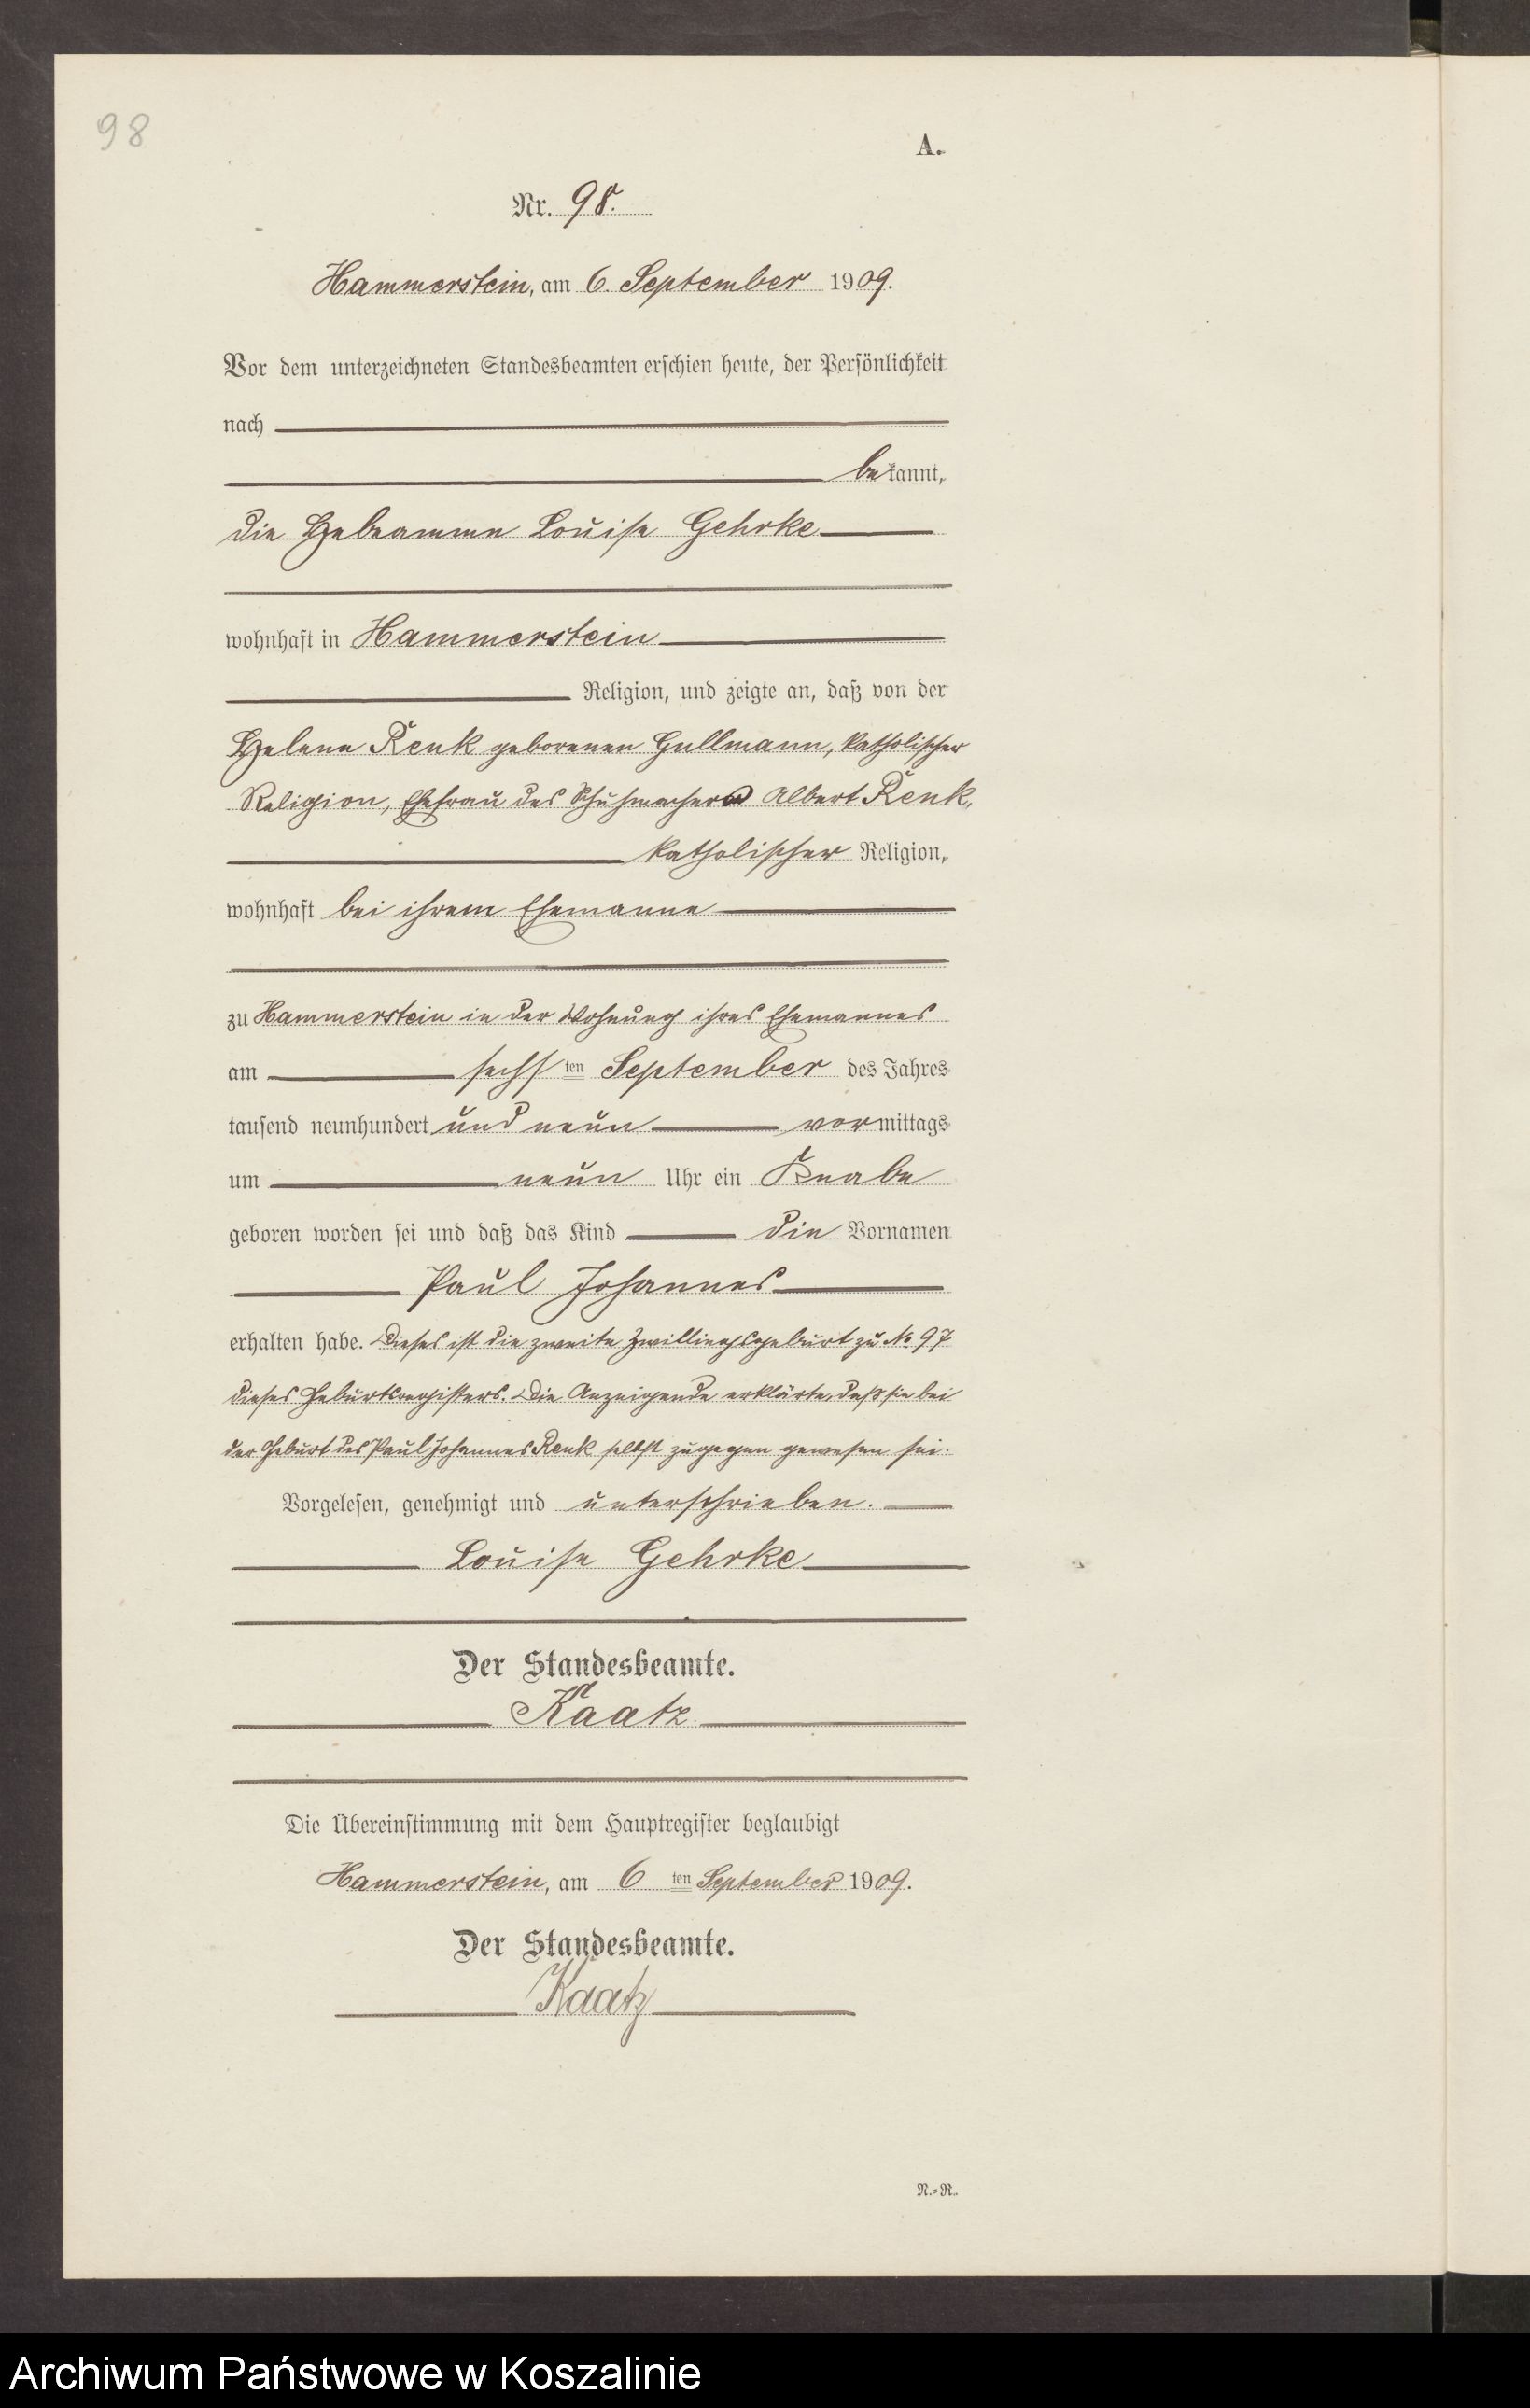 98
A.
Nr. 98.
Hammerstein, am 6. September 1909.
Vor dem unterzeichneten Standesbeamten erschien heute, der Persönlichkeit
nach
bekannt,
die Hebeamme Louise Gehrke
wohnhaft in Hammerstein
Religion, und zeigte an, daß von der
Helene Renk geborenen Gullmann, katholischer
Religion, Ehefrau des Schuhmachers Albert Renk,
katholischer Religion,
wohnhaft bei ihrem Ehemanne
zu Hammerstein in der Wohnung ihres Ehemannes
am sechsten September des Jahres
tausend neunhundert und neun vormittags
um neun Uhr ein Knabe
geboren worden sei und daß das Kind die Vornamen
Paul Johannes
erhalten habe. Dieses ist die zweite Zwillingsgeburt zu No 97
dieses Geburtsregisters. Die Anzeigende erklärte, daß sie bei
der Geburt des Paul Johannes Renk selbst zugegen gewesen sei.
Vorgelesen, genehmigt und unterschrieben.
Louise Gehrke
Der Standesbeamte.
Kaatz
Die Übereinstimmung mit dem Hauptregister beglaubigt
Hammerstein, am 6ten September 1909.
Der Standesbeamte.
Kaatz
N.=R.
Archiwum Państwowe w Koszalinie